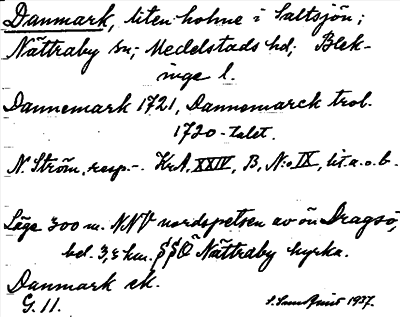 Danmark, liten holme i Saltsjön;
Nättraby sn; Medelstads hd; Blek-
inge l.
Dannemark 1721, Dannemarck trol.
1720-talet.
N. Ström, resp.-. KrA, XXIV, B, N:o IX, lit. a. o. b.
Läge 300 m. NNV nordspetsen av ön Dragsö,
bel. 3,5 km. SSÖ Nättraby kyrka.
Danmark ek.
G. 11.
1937.